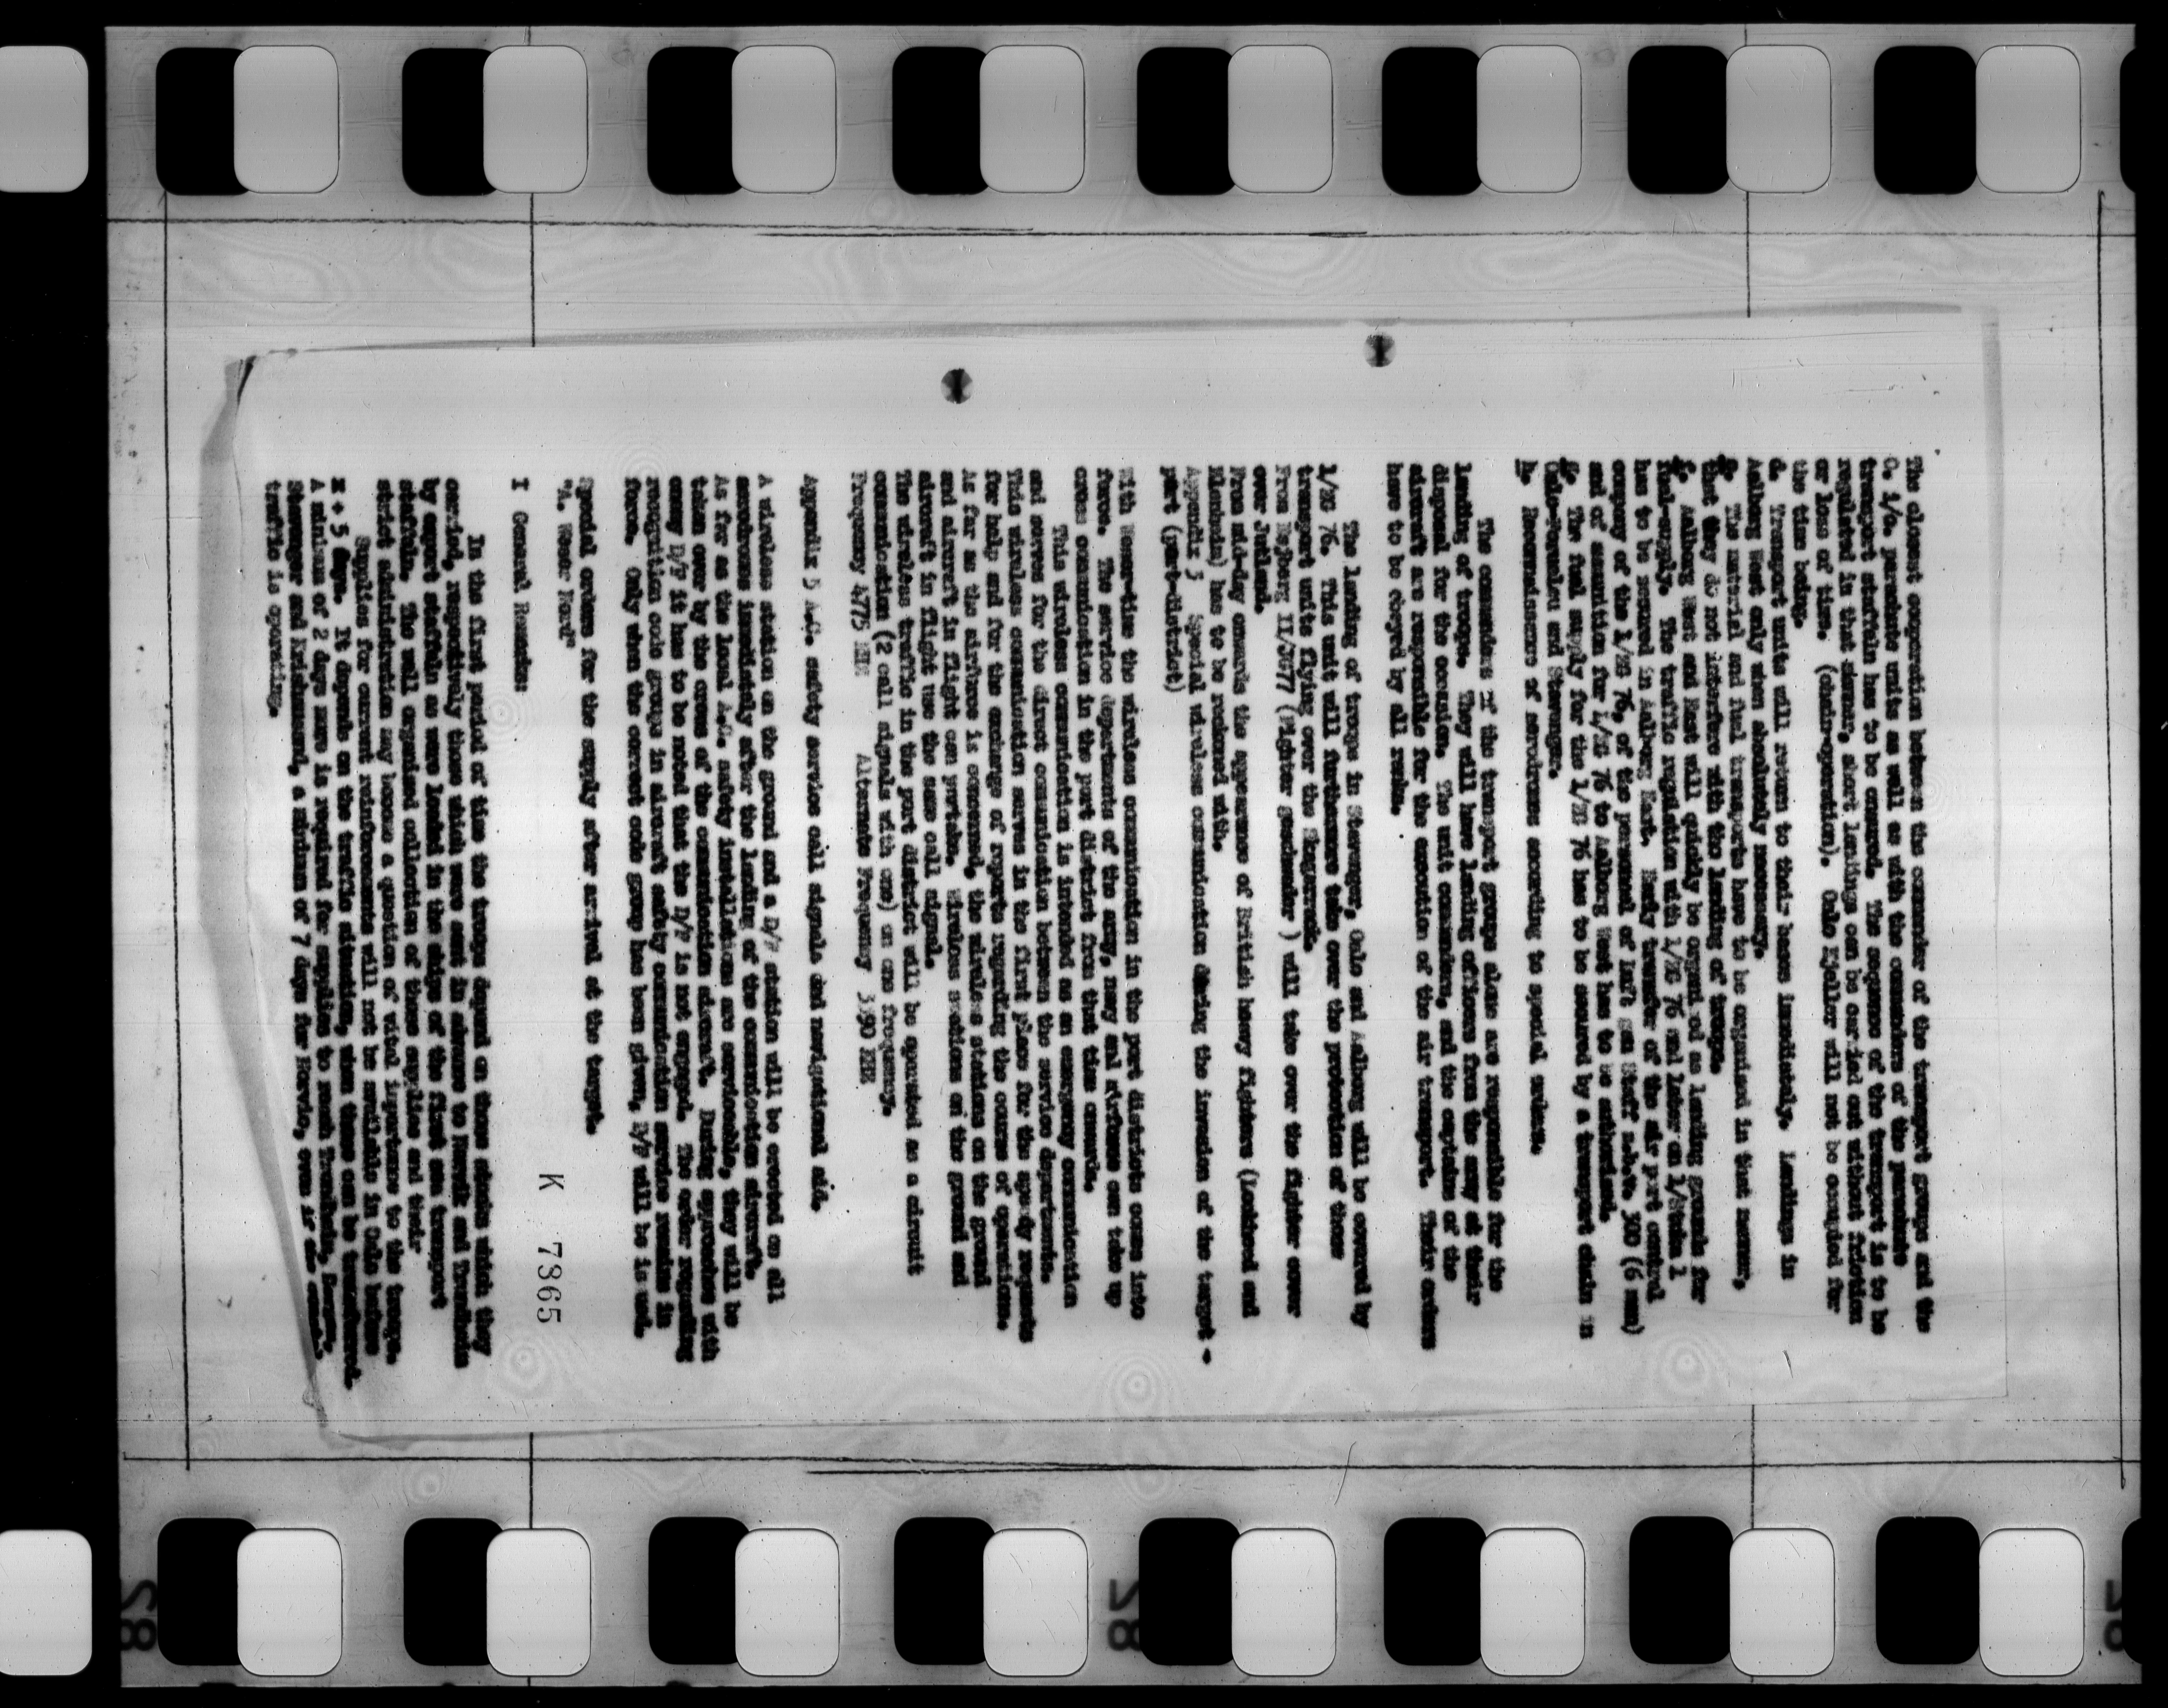 The closest cooperation between the commander of the transport groups and the
C. i/c. parachute units as well as with the commanders of the parachute
transport staffeln has to be ensured. The sequence of the transport is to be
regulated in that manner, short landings can be carried out without friction
or loss of time. (chain-operation). Oslo Kjeller will not be occupied for
the time being.
d. Transport units will return to their bases immediately. Landings in
Aalborg West only when absolutely necessary.
e. The material and fuel transports have to be organised in that manner,
that they do not interfere with the landing of troops.
f. Aalborg West and East will quickly be organised as landing grounds for
fuel-supply. The traffic regulation with 1/ZG 76 and later on 1/Stuka 1
has to be ensured in Aalborg East. Early transfer of the air port control
company of the 1/ZG 76, of the personnel of Luft gau Staff z.b.V. 300 (6 men)
and of ammunition for 1/ZG 76 to Aalborg West has to be authorised.
g. The fuel supply for the 1/ZG 76 has to be secured by a transport chain in
Oslo-Fornebu and Stavanger.
h. Reconnaissance of aerodromes according to special orders.
The commanders of the transport groups alone are responsible for the
landing of troops. They will have landing officers from the army at their
disposal for the occasion. The unit commanders, and the captains of the
aircraft are responsible for the execution of the air transport. Their orders
have to be obeyed by all ranks.
The landing of troops in Stavanger, Oslo and Aalborg will be covered by
1/ZG 76. This unit will furthermore take over the protection of those
transport units flying over the Skagerrack.
From Nejberg II/JG77 (Fighter geschwader) will take over the fighter cover
over Jutland.
From mid-day onwards the appearance of British heavy fighters (Lockheed and
Blenheim) has to be reckoned with.
Appendix 5 Special wireless communication during the invasion of the target -
part (part-district)
With Weser-time the wireless communication in the part districts comes into
force. The service departments of the army, navy and airforce can take up
cross communication in the part district from that time onwards.
This wireless communication is intended as an emergency communication
and serves for the direct communication between the service departments.
This wireless communication serves in the first place for the speedy requests
for help and for the exchange of reports regarding the course of operations.
As far as the airforce is concerned, the wireless stations on the ground
and aircraft in flight can partake. Wireless stations on the ground and
aircraft in flight use the same call signal.
The wireless traffic in the part district will be operated as a circuit
communication (2 call signals with one) on one frequency.
Frequency 4775 KHz Alternate Frequency 3390 KHz
Appendix 5 A.C. safety service call signals and navigational aid.
A wireless station on the ground and a D/F station will be erected on all
aerodromes immediately after the landing of the communication aircraft.
As far as the local A.C. safety installations are serviceable, they will be
taken over by the crews of the communication aircraft. During approaches with
enemy D/F it has to be noted that the D/F is not engaged. The order regarding
recognition code groups in aircraft safety communication service remains in
force. Only when the correct code group has been given, D/F will be issued.
Special orders for the supply after arrival at the target.
"A. Weser Nord"
I General Remarks:
K 7365
In the first period of time the troops depend on those stocks which they
carried, respectively those which were sent in advance to Narvik and Trondheim
by export staffeln as were loaded in the ships of the first sea transport
staffeln. The well organised collection of these supplies and their
strict administration may become a question of vital importance to the troops.
Supplies for current reinforcements will not be available in Oslo before
X + 5 days. It depends on the traffic situation, when these can be transferred.
A minimum of 2 days more is required for supplies to reach Trondheim, Bergen,
Stavanger and Kristiansand, a minimum of 7 days for Narvic, even if
traffic is operating.
28
28
28